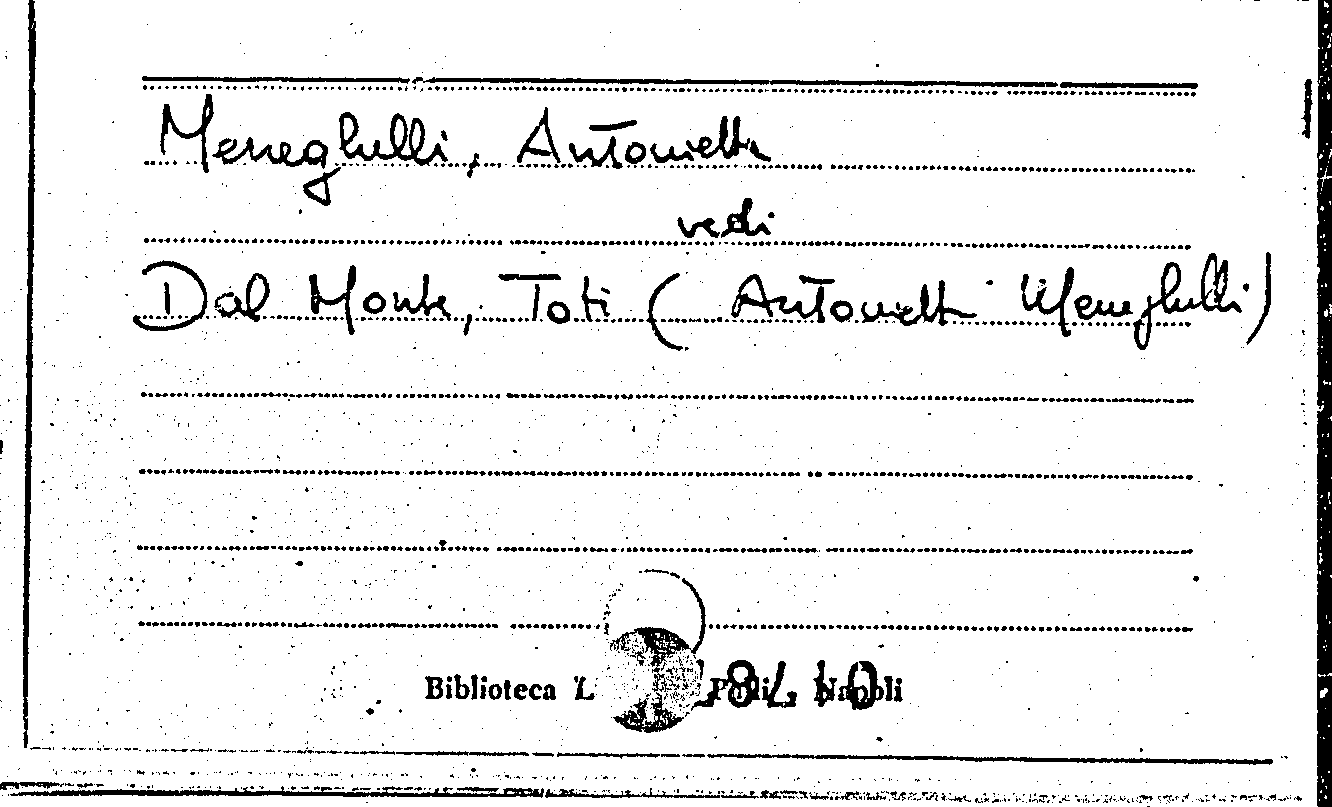 Meneghelli, Antonietta
vedi
Dal Monte, Toti (Antonietta Meneghelli)
Biblioteca L Napoli